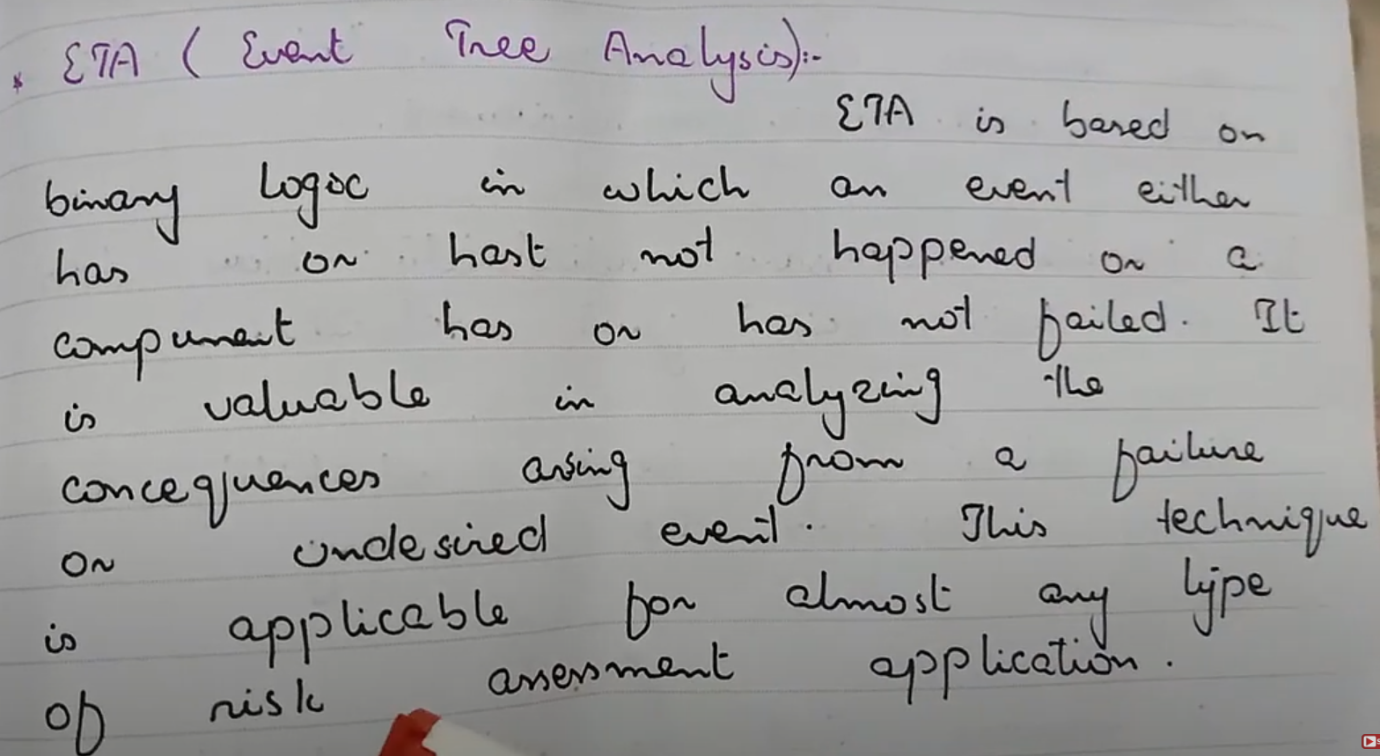 * ETA ( Event Tree Analysis):-
ETA is based on
binary logic in which an event either
has or hast not happened or a
compunent has or has not failed. It
is valuable in analyzing the
concequences arsing from a failure
or undesired event. This technique
is applicable for almost any type
of risk assessment application.